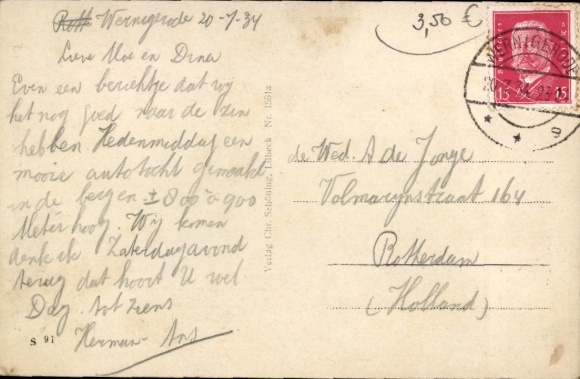 Wernigerode 20-7-34
Lieve Moe en Dina
Even een berichtje dat wij
het nog goed naar de zin
hebben Hedenmiddag een
mooie autotocht gemaakt
in de bergen ± 800 à 900
Meter hoog. Wij komen
denk ik Zaterdagavond
terug dat hoort U wel
Dag. tot ziens
Herman Ans
S 91
Verlag Chr. Schöning, Lübeck Nr. 1551a
3,50 €
15 15
WERNIGERODE
g
de Wed. A de Jonge
Volmarijnstraat 164
Rotterdam
(Holland)